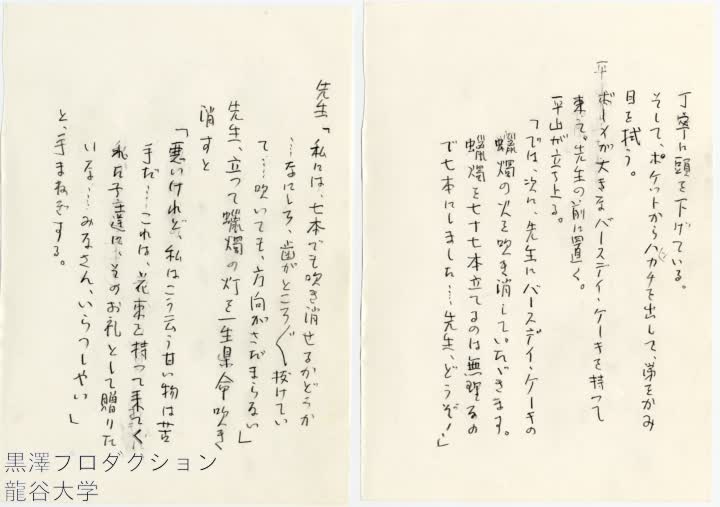 丁寧に頭を下げている。
そして、ポケットからハンカチを出して、涕をかみ
目を拭う。
ボーイが大きなバースデイ・ケーキを持って
来て。先生の前に置く。
平山が立ち上る。
「では、次に、先生にバースデイ・ケーキの
蠟燭の火を吹き消していたゞきます。
蠟燭を七十七本立てるのは無理なの
で七本にしました…先生、どうぞ!」
先生「私には、七本でも吹き消せるかどうか
…なにしろ、歯がところ〴〵抜けてい
て……吹いても、方向がさだまらない」
先生、立って蠟燭の灯を一生県命吹き
消すと
「悪いけれど、私はこう云う甘い物は苦
手だ……これは、花束を持って来てく
れた子達に、そのお礼として贈りた
いな……みなさん、いらっしやい」
と、手まねきする。
黒澤プロダクション
龍谷大学